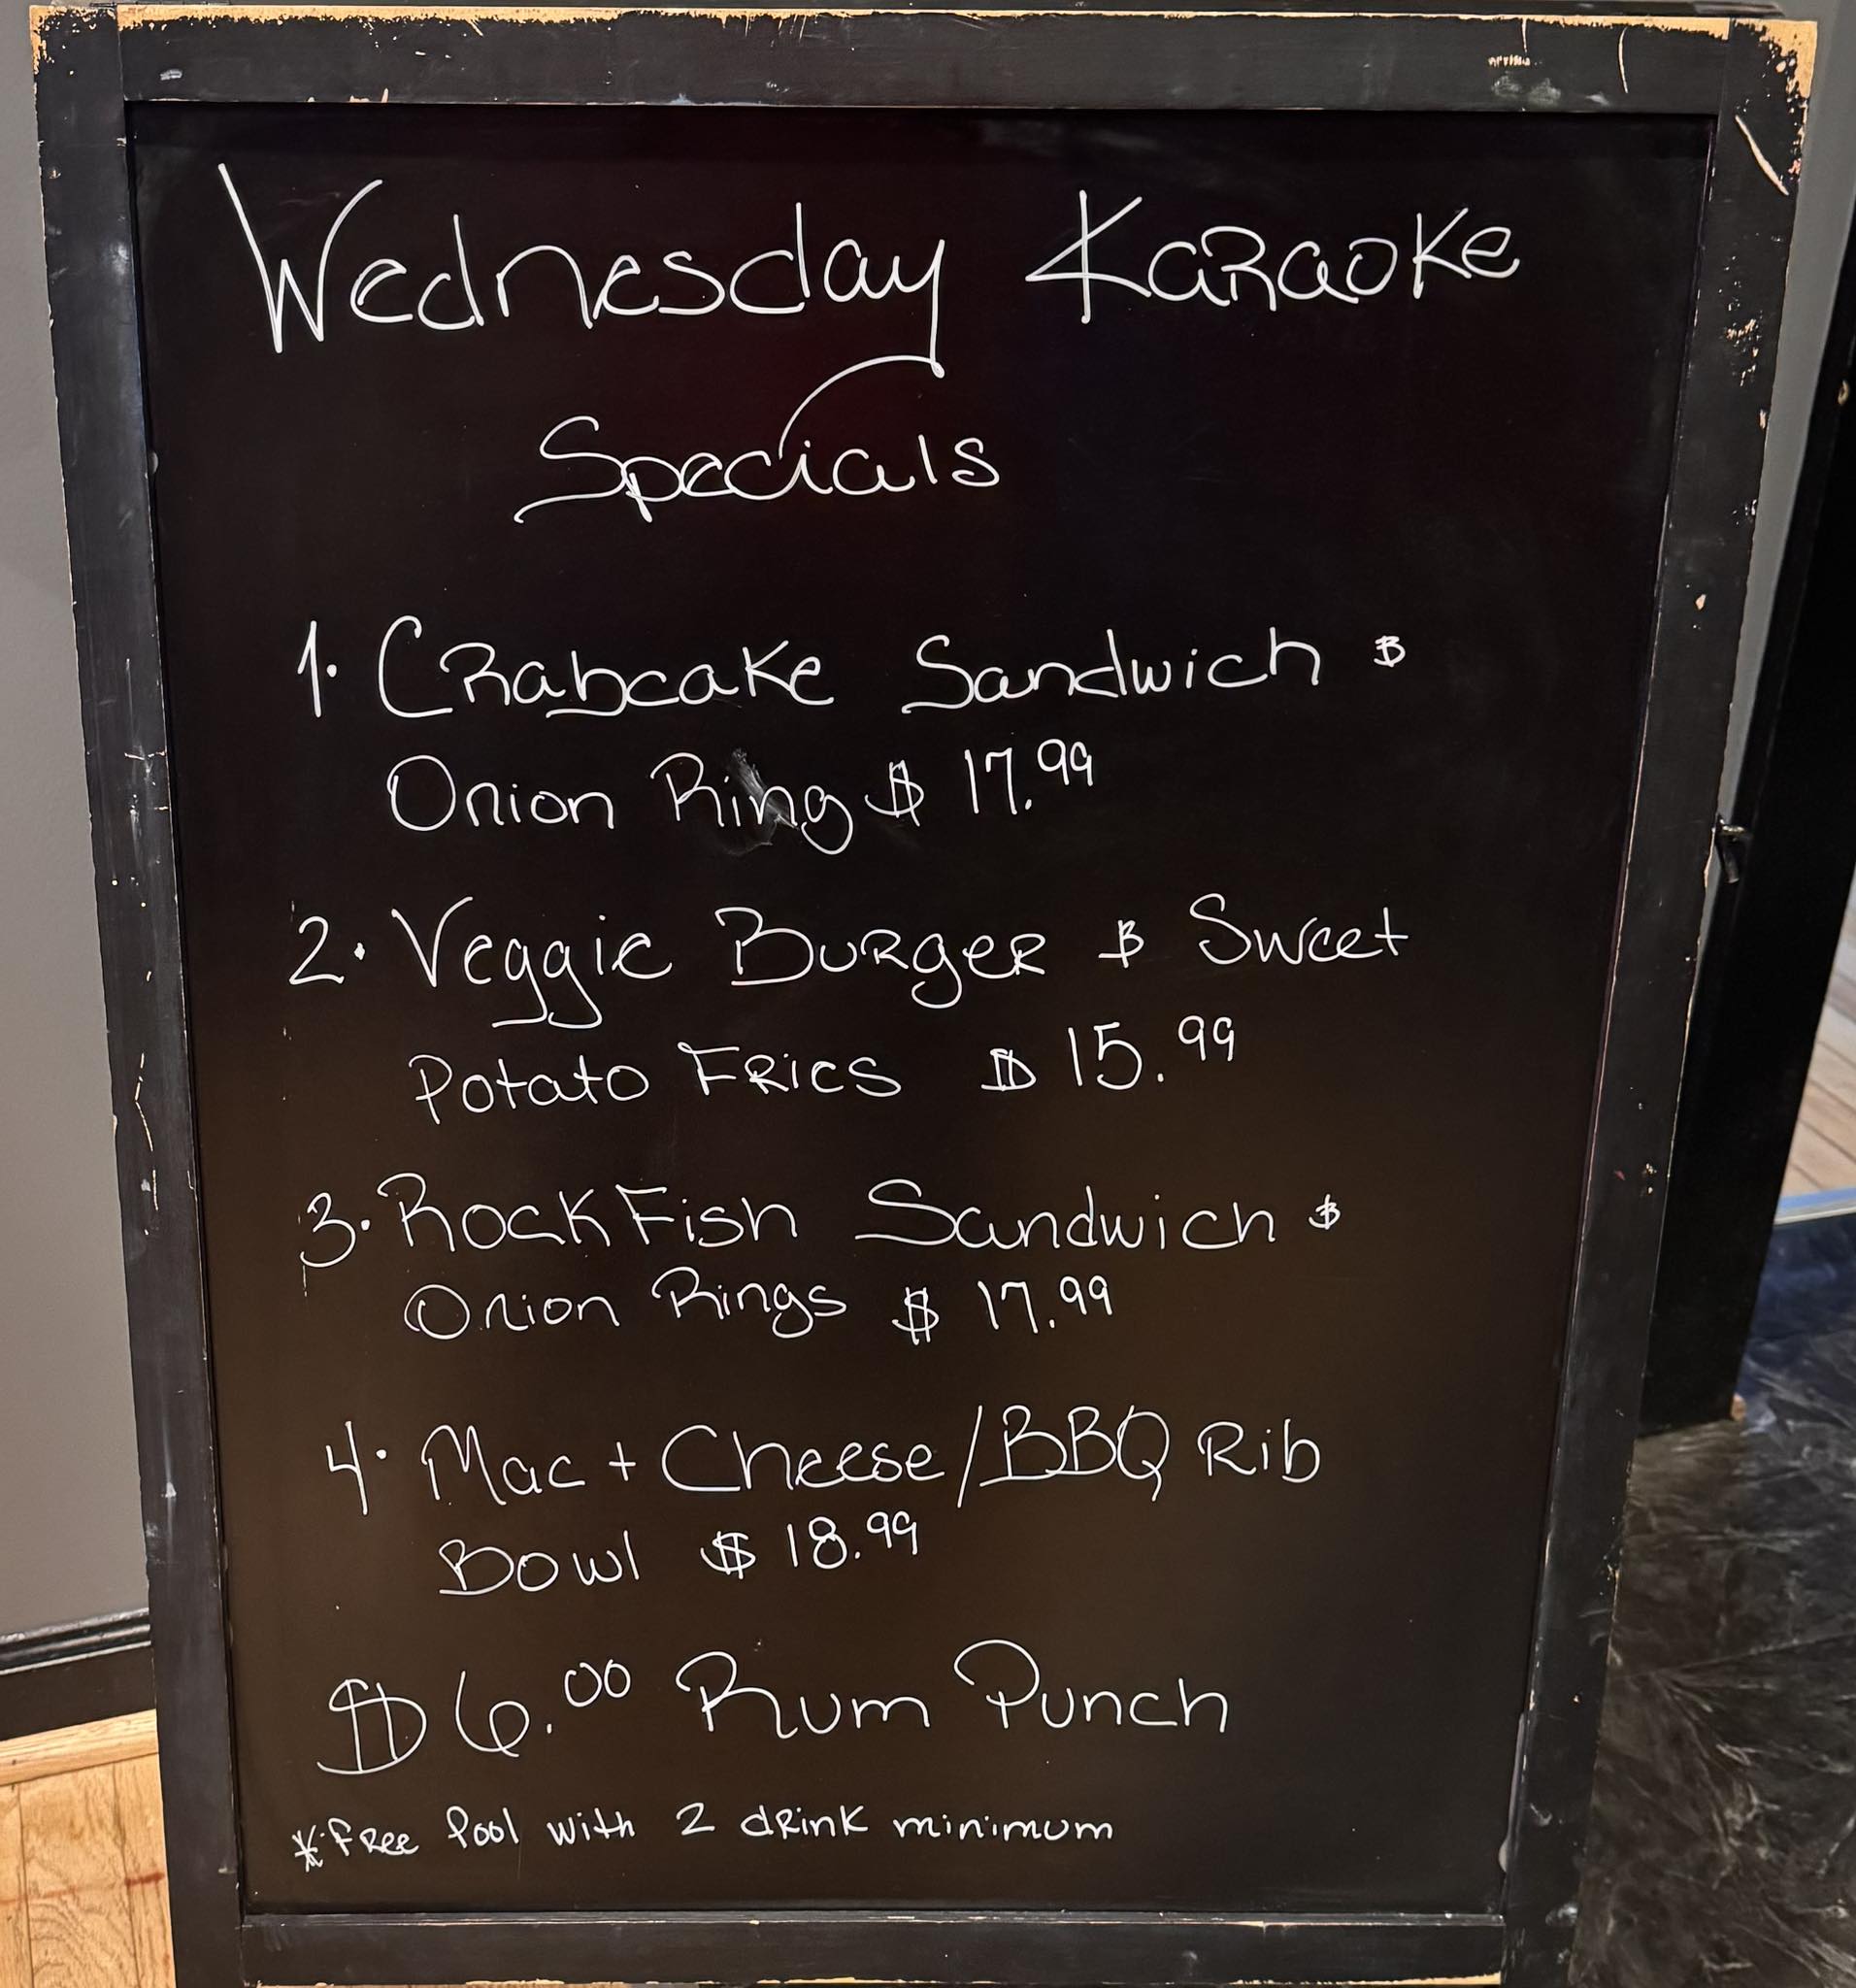 Wednesday Karaoke
Specials
1. Crabcake Sandwich &
Onion Ring $ 17.99
2. Veggie Burger & Sweet
Potato Fries $ 15.99
3. Rockfish Sandwich &
Onion Rings $ 17.99
4. Mac + Cheese/BBQ Rib
Bowl $ 18.99
$6.00 Rum Punch
*free Pool with 2 drink minimum